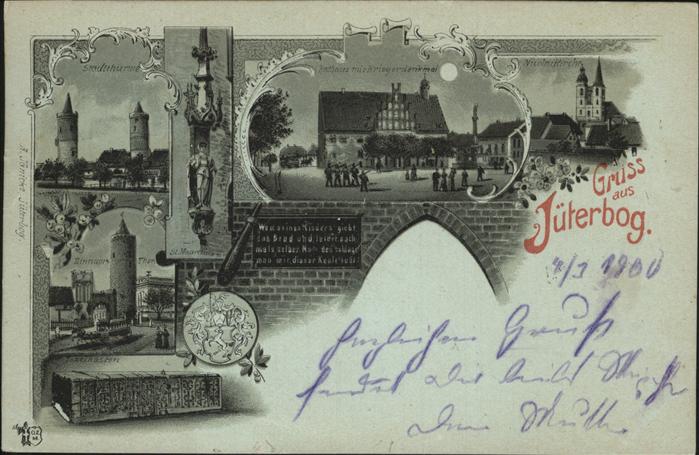 Stadtthürme
Rathaus mit Kriegerdenkmal
Nicolaikirche
Gruss
aus
Jüterbog.
St. Mauritius
Wer seinen Kindern giebt
das Brod und leidet nach-
mals selber Noth den schlage
man mit dieser Keule todt
Zinnaer Thor
Tetzelkasten
1900
Herzlichen Gruß
sendet Dir
Jüterbog